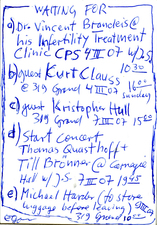 WAITING FOR
a) Dr. Vincent Brandeis @
his Infertility Treatment
Clinic CPS 4 III 07 w/ J.S.
b) guest Kurt Clauss 10 30
@ 319 Grand 4 III 07 16 00 Sunday
c) guest Kristopher Hull
319 Grand 7 III 07 15 00
d) Start Concert
Thomas Quasthoff +
Till Brönner @ Carnegie
Hall w/ J.S. 7 III 07 19 45
e) Michael Harder to store
luggage before leaving
319 Grand 10 00